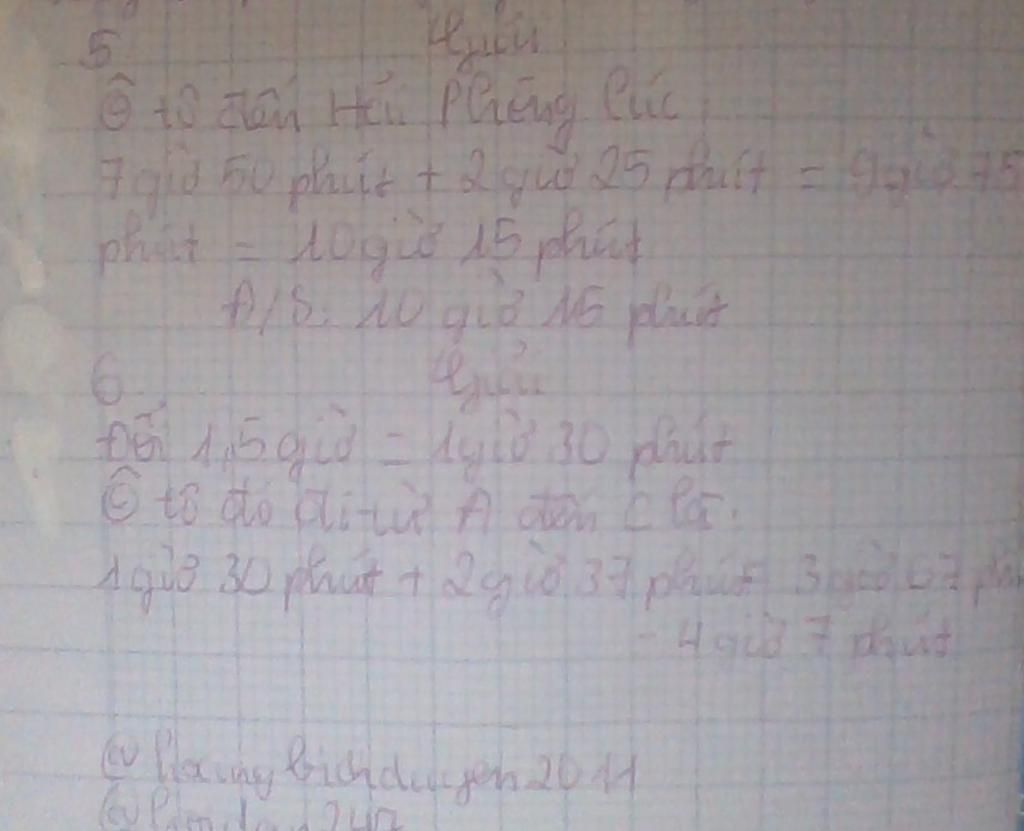 5. Giải
Ô tô đến Hải Phòng lúc
7 giờ 50 phút + 2 giờ 25 phút = 9 giờ 75
phút = 10 giờ 15 phút
Đ/S: 10 giờ 15 phút
6. Giải
Đổi 1,5 giờ = 1 giờ 30 phút
Ô tô đó đi từ A đến C là:
1 giờ 30 phút + 2 giờ 37 phút 3 giờ 67 ph
= 4 giờ 7 phút
bichduyen2011